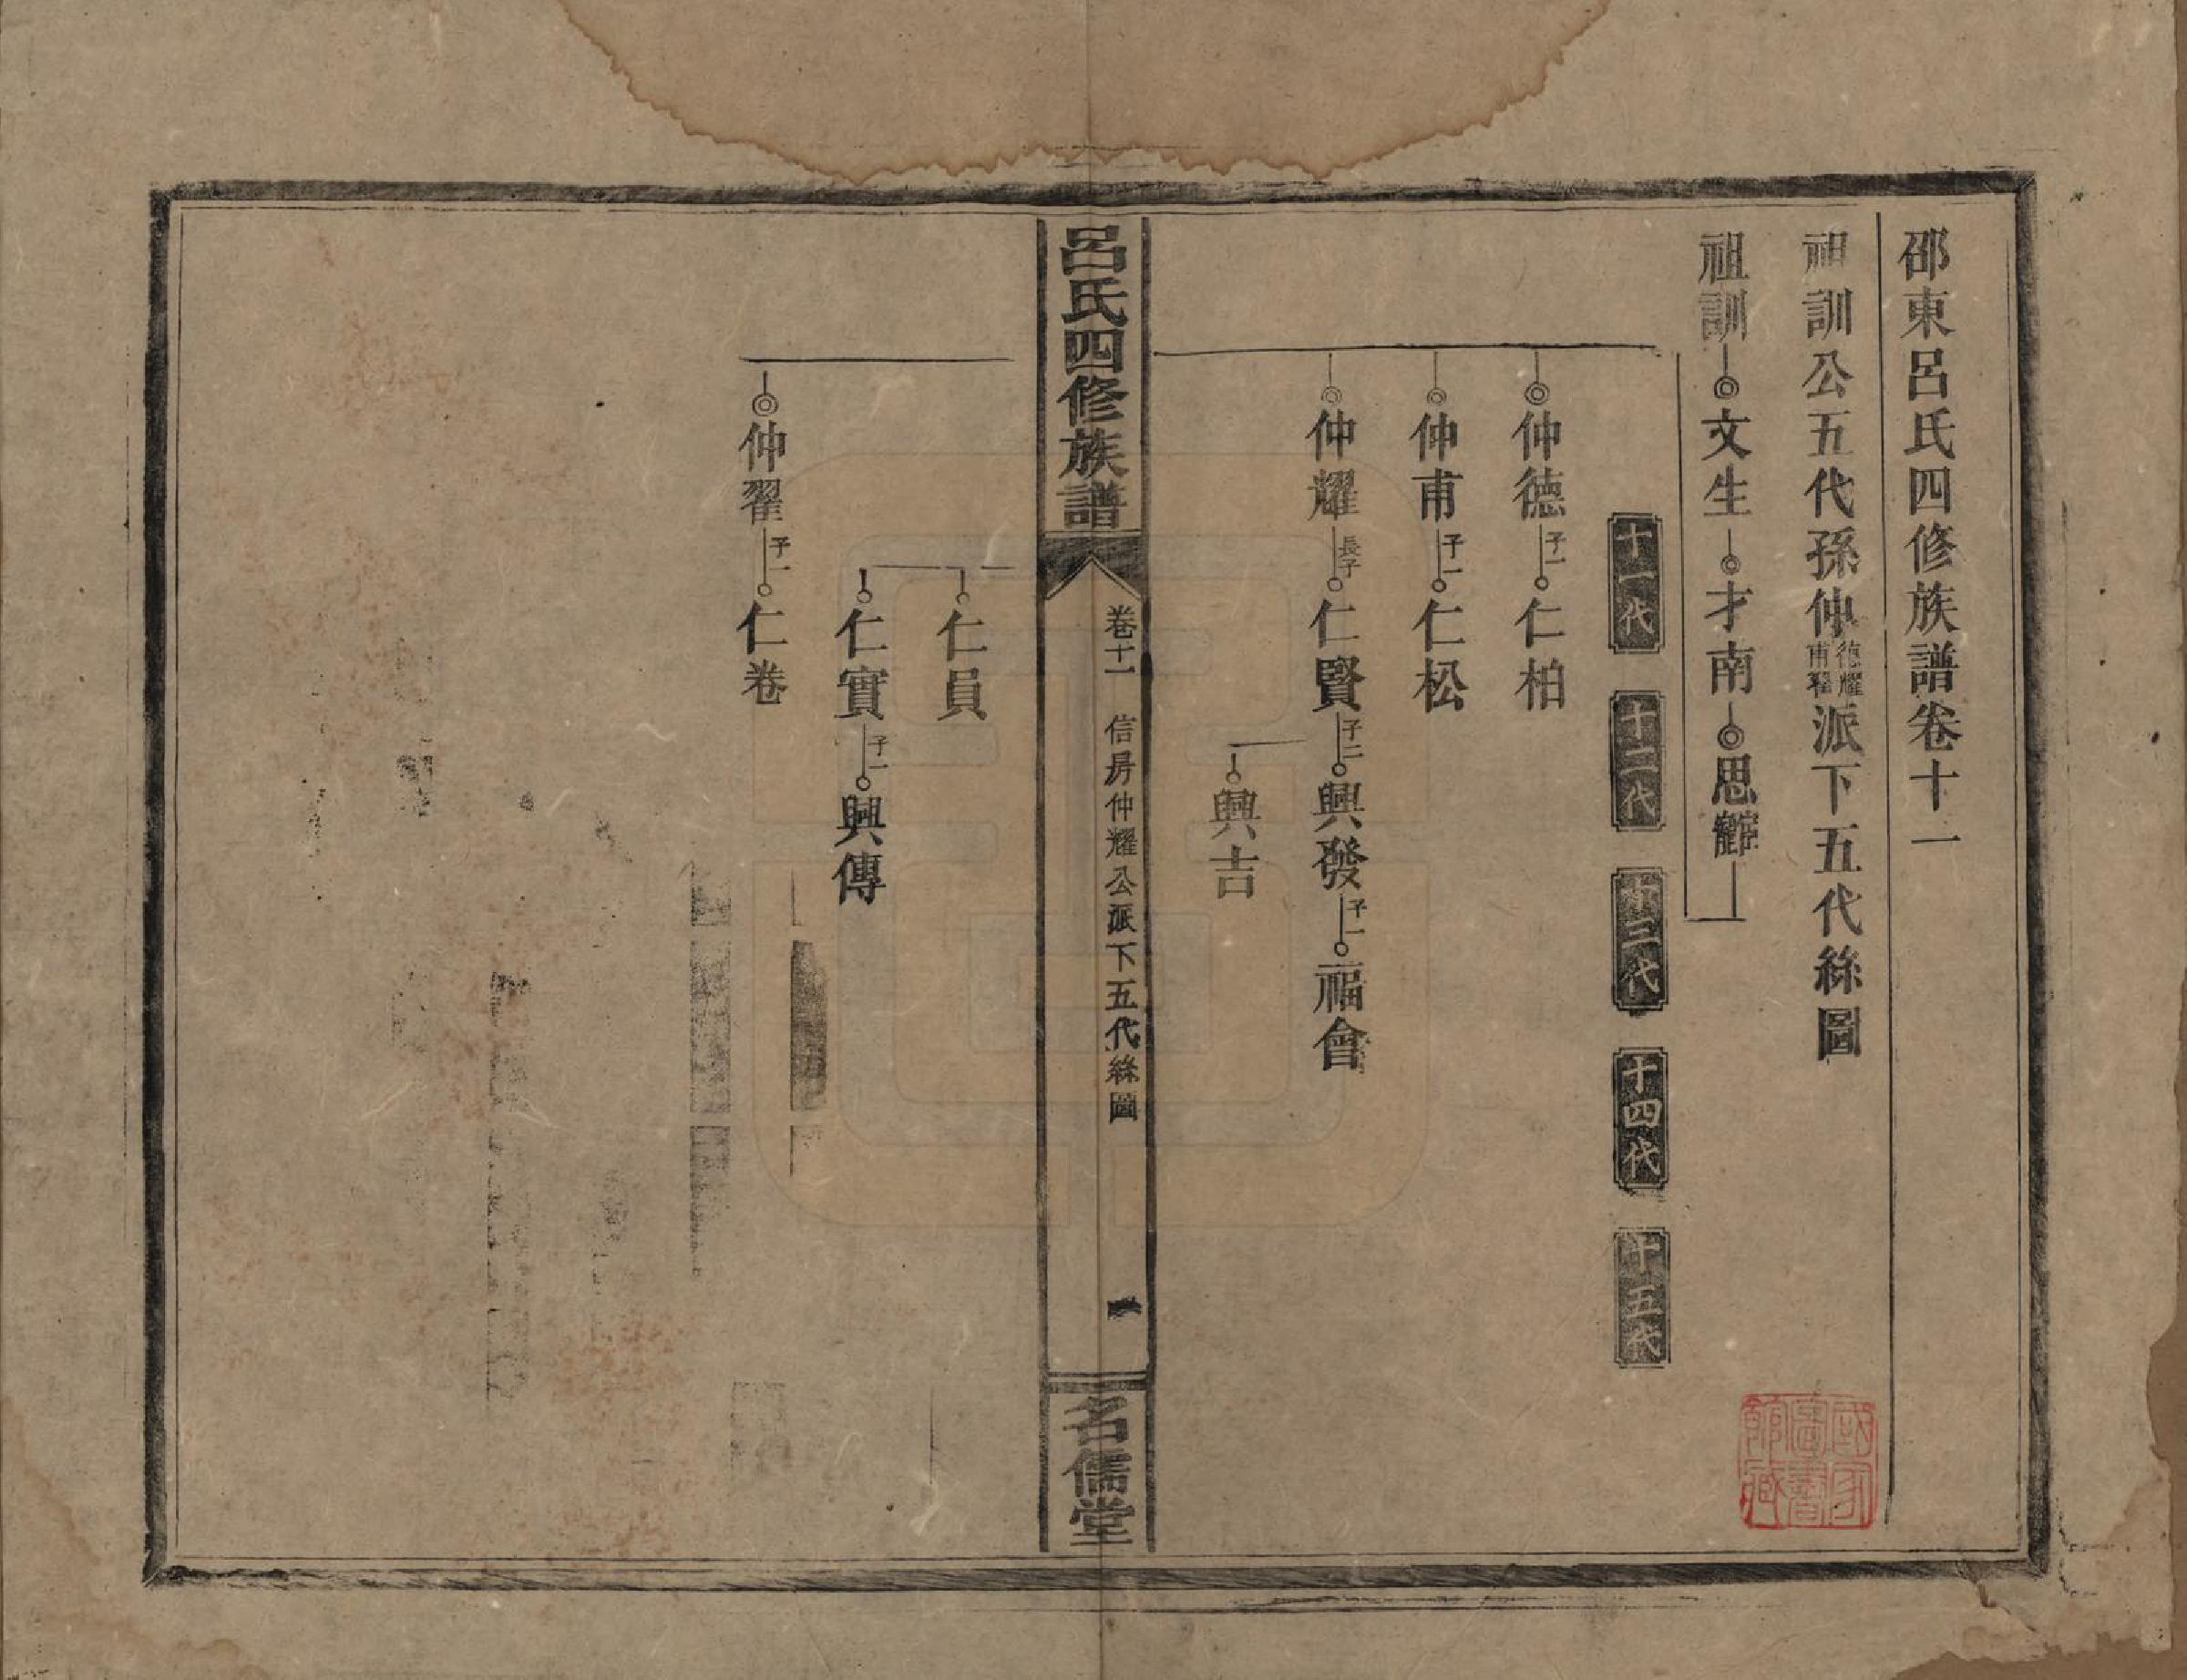 邵東呂氏四修族譜卷十一
祖訓公五代孫仲德耀甫翟派下五代絲圖
祖訓 文生 才南 思鶴
十一代 十二代 十三代 十四代 十五代
仲德 子一 仁柏
仲甫 子一 仁松
仲耀 長子 仁賢 子二 興發 子一 福會
興吉
呂氏四修族譜 卷十一 信房仲耀公派下五代絲圖 一 名儒堂
仁員
仁實 子一 興傳
仲翟 子一 仁卷
國家圖書館藏